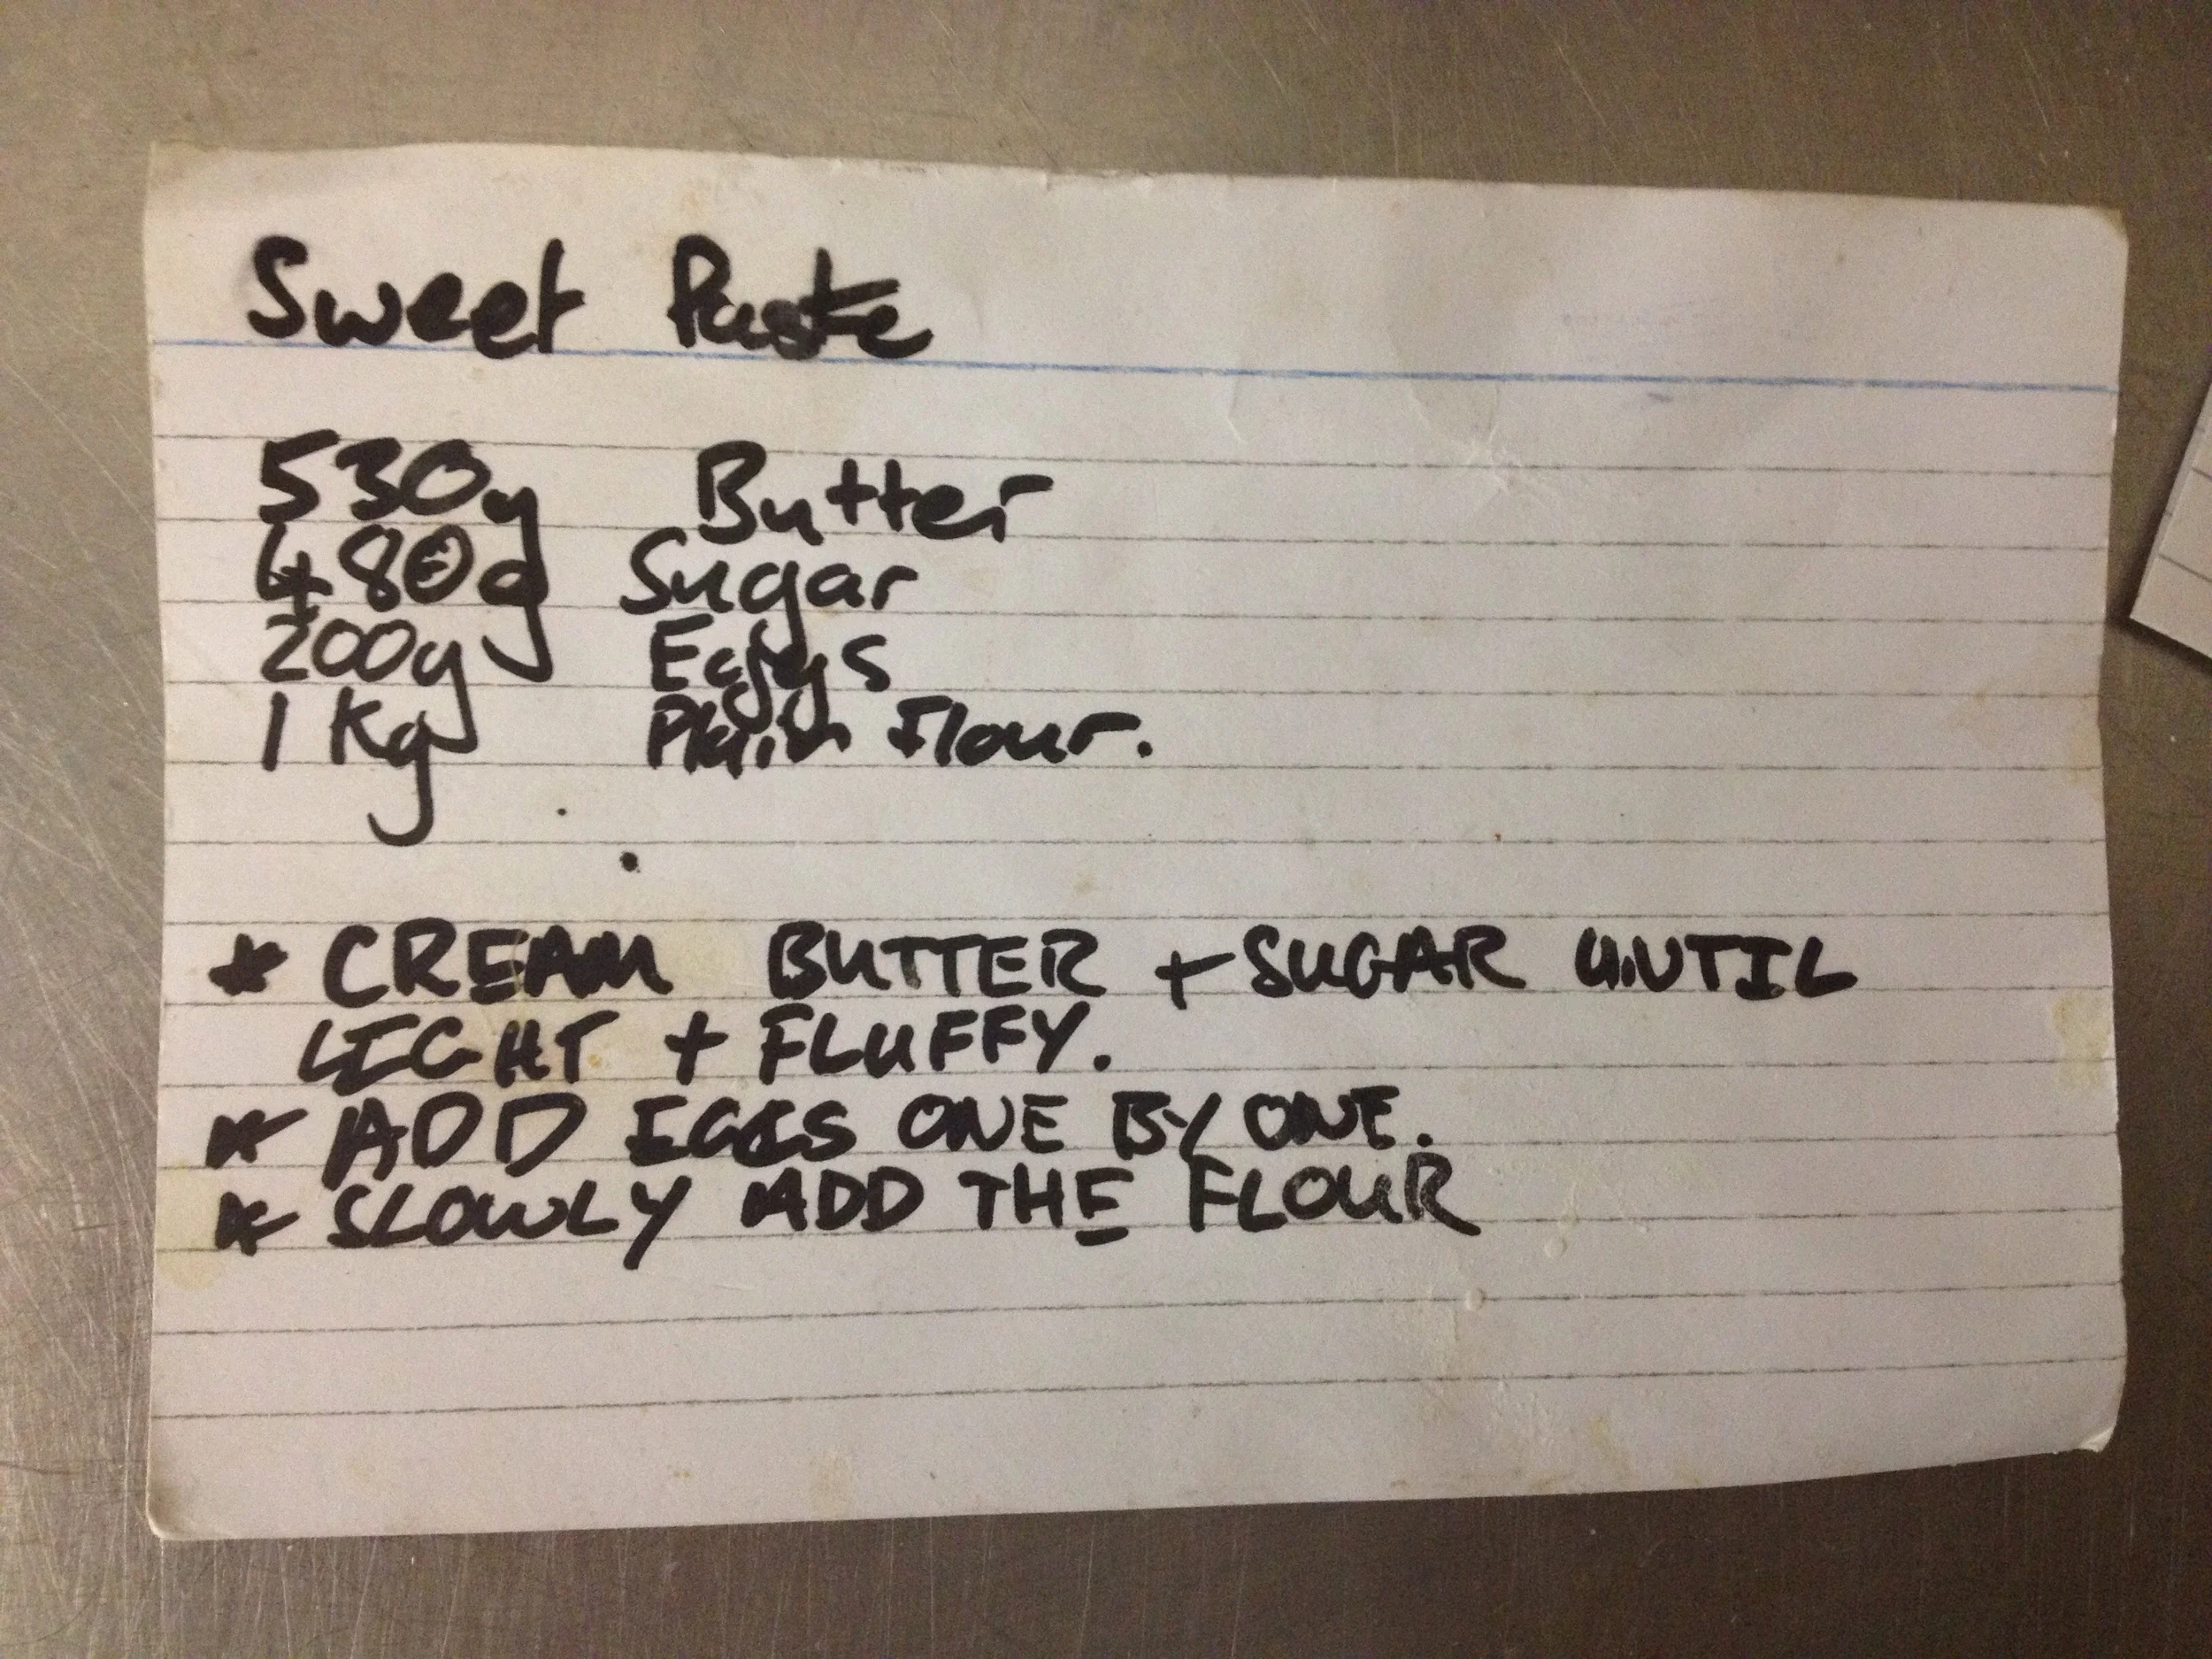 Sweet Paste
530g Butter
480g Sugar
200g Eggs
1 Kg Plain Flour.
* CREAM BUTTER + SUGAR UNTIL
LIGHT + FLUFFY.
* ADD EGGS ONE BY ONE.
* SLOWLY ADD THE FLOUR